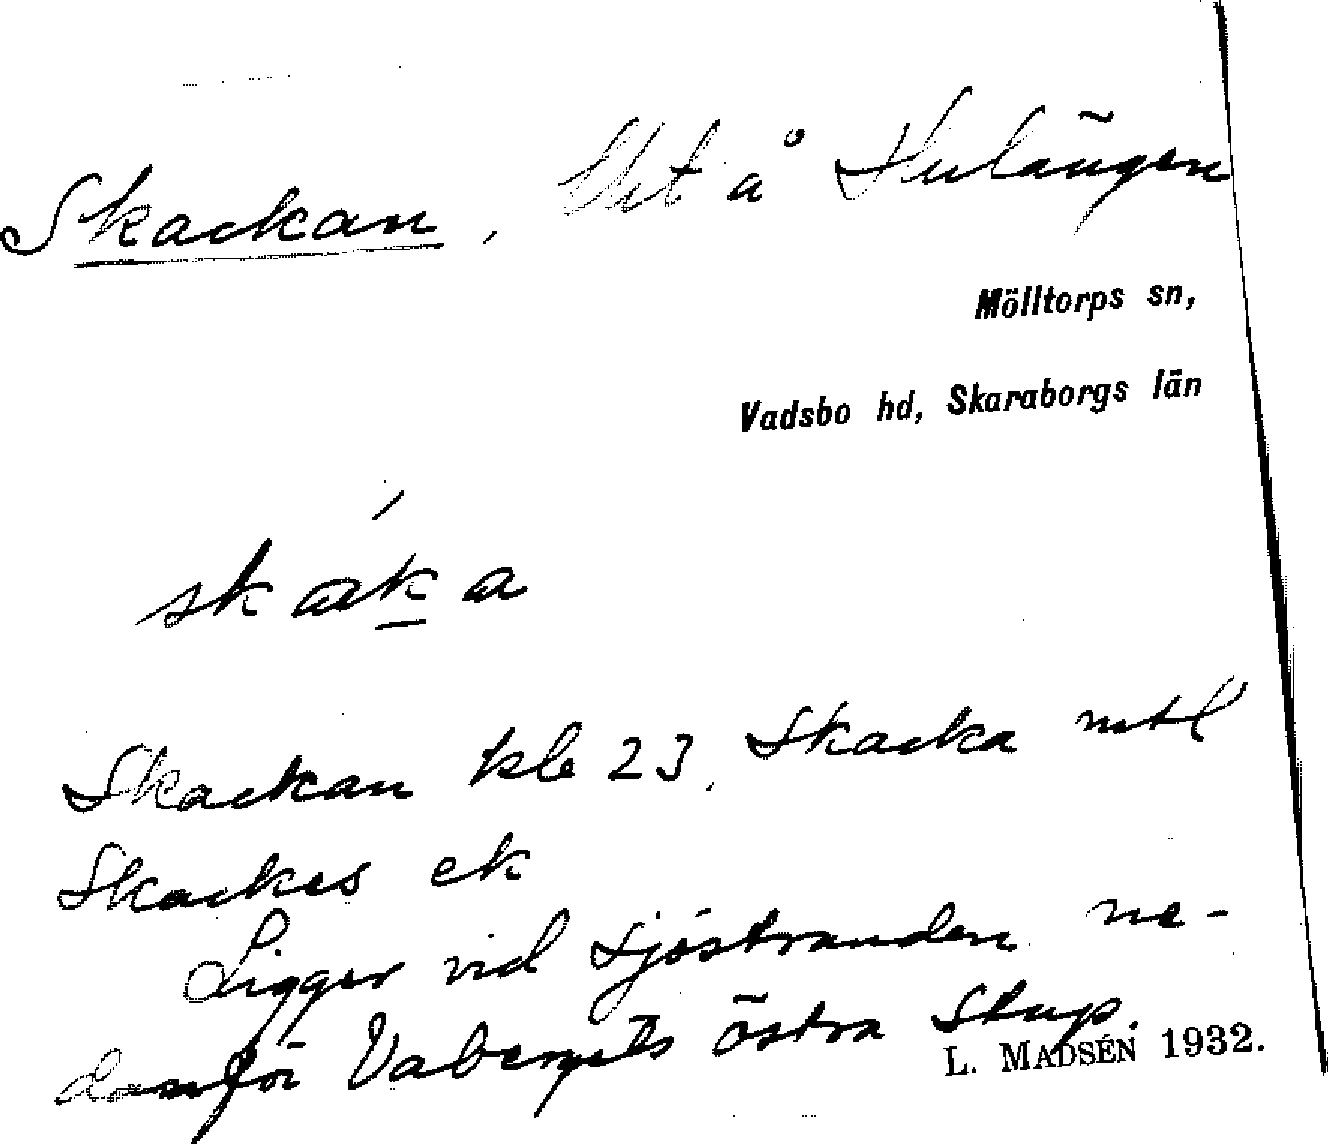 Skackan, å
Mölltorps sn,
Vadsbo hd, Skaraborgs län
skak̲a
Skackan kb 23, Skacka mtl
Skackes ek
Ligger vid sjöstranden ne-
danför Vabergets östra stup.
L. MADSÉN 1932.